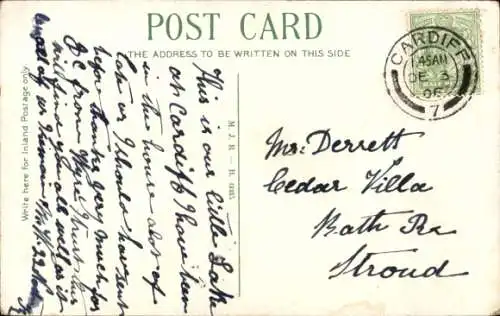 POST CARD
THE ADDRESS TO BE WRITTEN ON THIS SIDE
Write here for Inland Postage only.
M.J.R. – B.
CARDIFF
DE 3
7
This is our little Lake
at Cardiff I have been
in the house lot of
late or I should have sent
before thanks very much for
P.C. from I trust this
will find you all well as it
Mr. Derrett
Cedar Villa
Bath Rd
Stroud